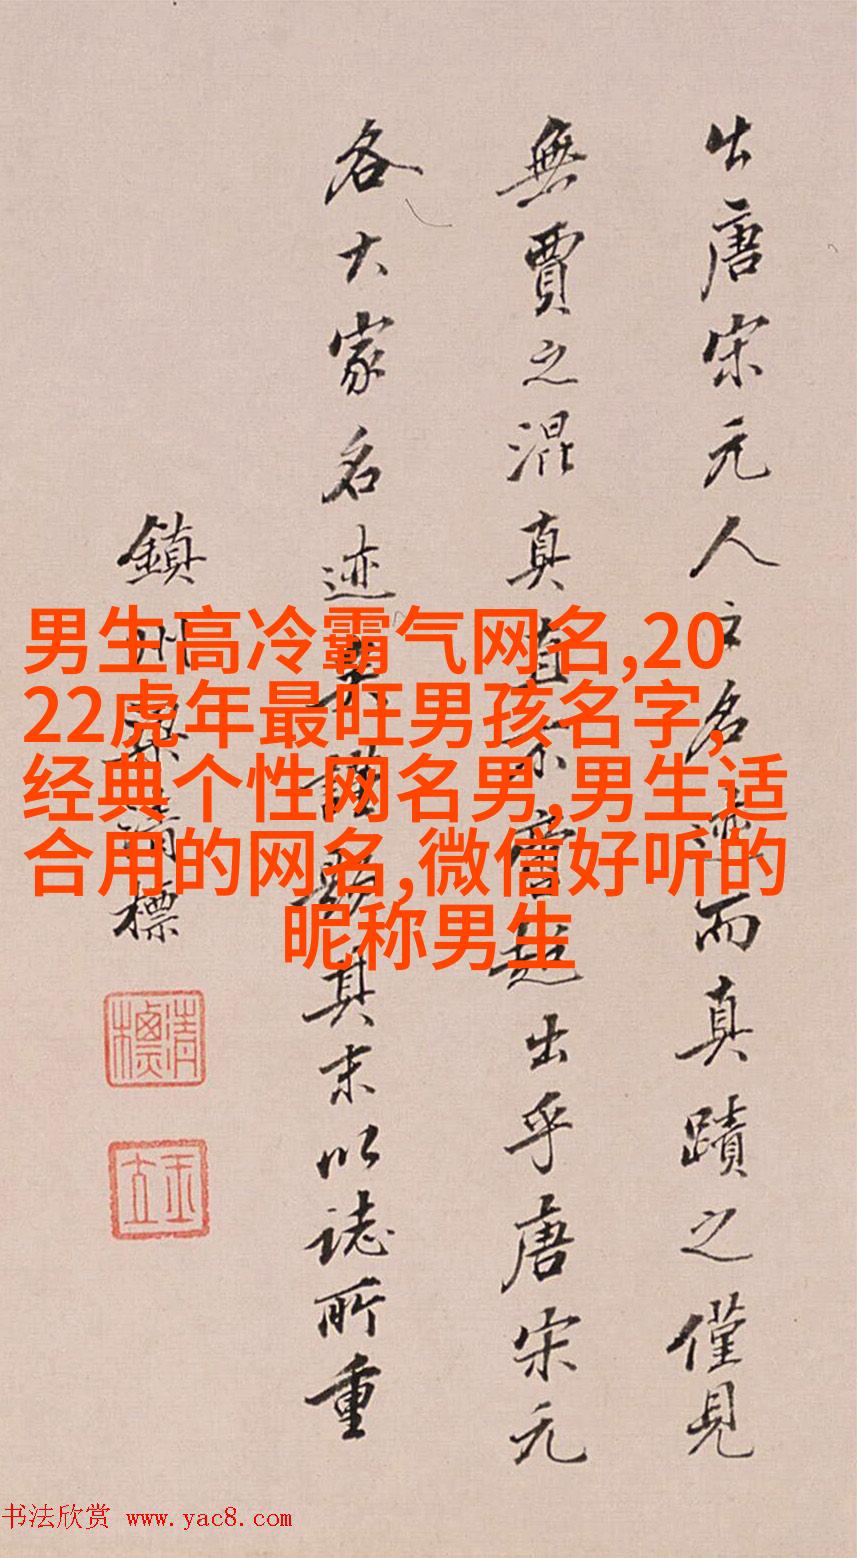 出唐宋元人之名迹而真蹟之僅見
無賈之混真直不啻超出乎唐宋元
各大家名迹矣謹其末以誌所重
鎮州梁清標
清標
玉立
男生高冷霸气网名,20
22虎年最旺男孩名字,
经典个性网名男,男生适
合用的网名,微信好听的
昵称男生
书法欣赏 www.yac8.com